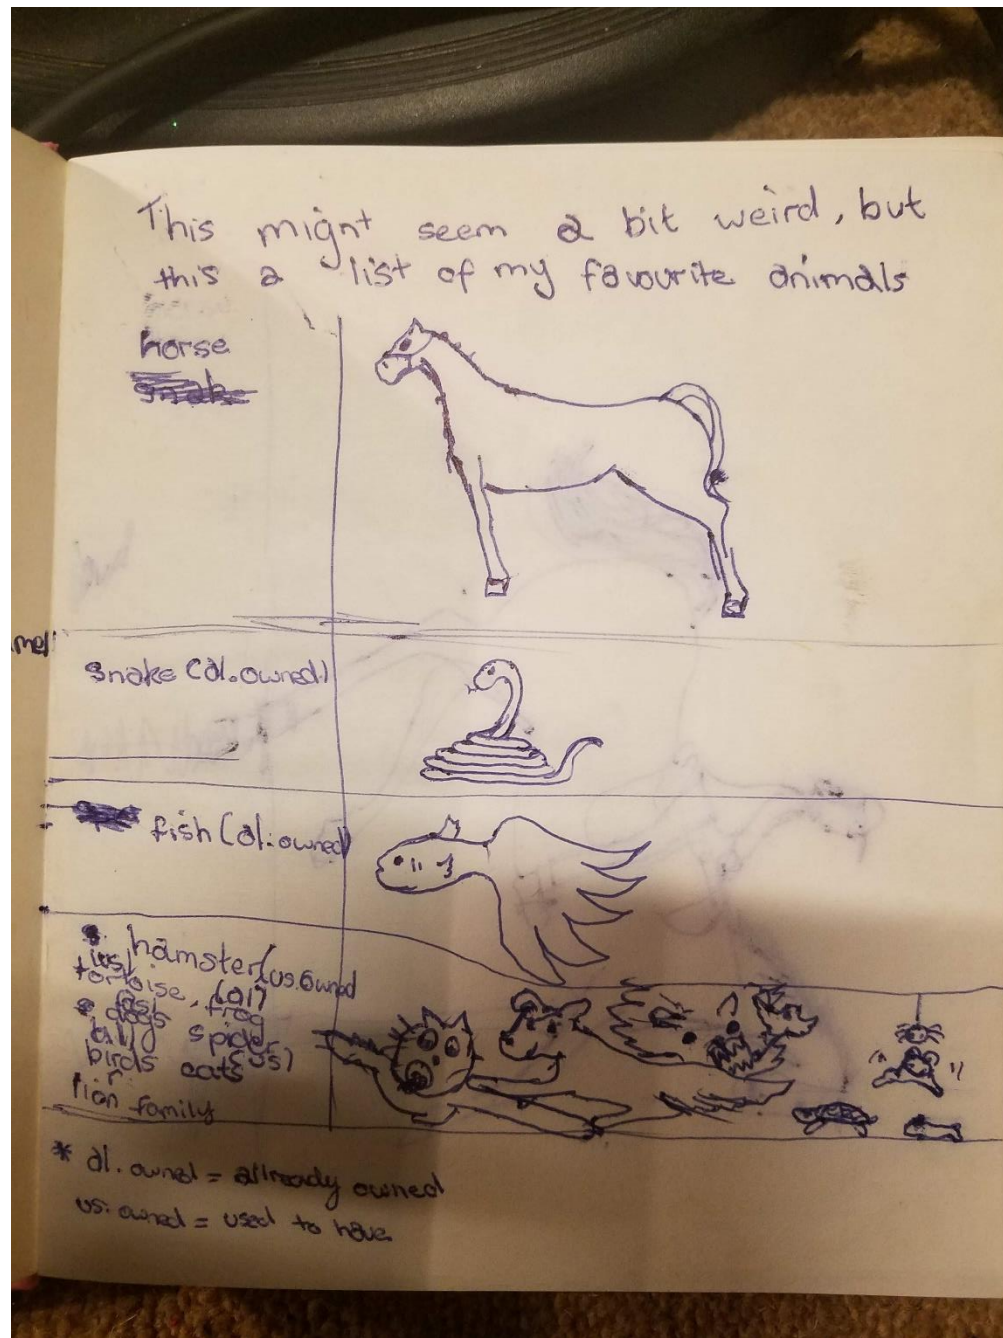 This mignt seem a bit weird, but
this a list of my favourite animals
horse
snake (al.owned)
fish (al.owned)
hamster (us.owned
tortoise, (al)
dogs frog
spider
birds cats
lion family
* al. owned = allready owned
us. owned = used to have